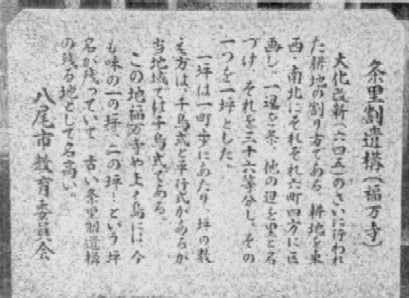 条里割遺構(福万寺)
大化改新(六四五)のさいに行われ
た耕地の割り方である。耕地を東
西・南北にそれぞれ六町四方に区
画し、一辺を条、他の辺を里と名
づけ、それを三十六等分し、その
一つを一坪とした。
一坪は一町歩にあたり、坪の数
え方は、千鳥式と平行式があるが
当地域では千鳥式である。
この地福万寺や上之島には今
も味の一の坪、二の坪…という坪
名が残っていて、古い条里制遺構
の残る地として名高い。
八尾市教育委員会